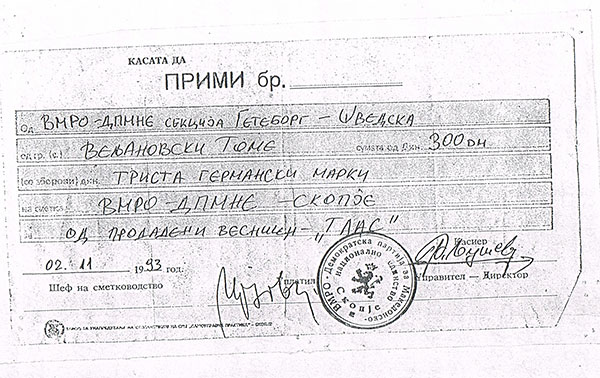 КАСАТА ДА
ПРИМИ бр.
Од ВМРО-ДПМНЕ СЕКЦИЈА ГЕТЕБОРГ - ШВЕДСКА
од гр. (с.) ВЕЉАНОВСКИ ТОМЕ сумата од Дин. 300 DM
(со зборови) дин. ТРИСТА ГЕРМАНСКИ МАРКИ
на сметка ВМРО-ДПМНЕ - СКОПЈЕ
ОД ПРОДАДЕНИ ВЕСНИЦИ - „ГЛАС"
02. 11 1993 год. платил Касиер
Шеф на сметководство Управител — Директор
ВМРО - Демократска партија за Македонско национално единство Скопје